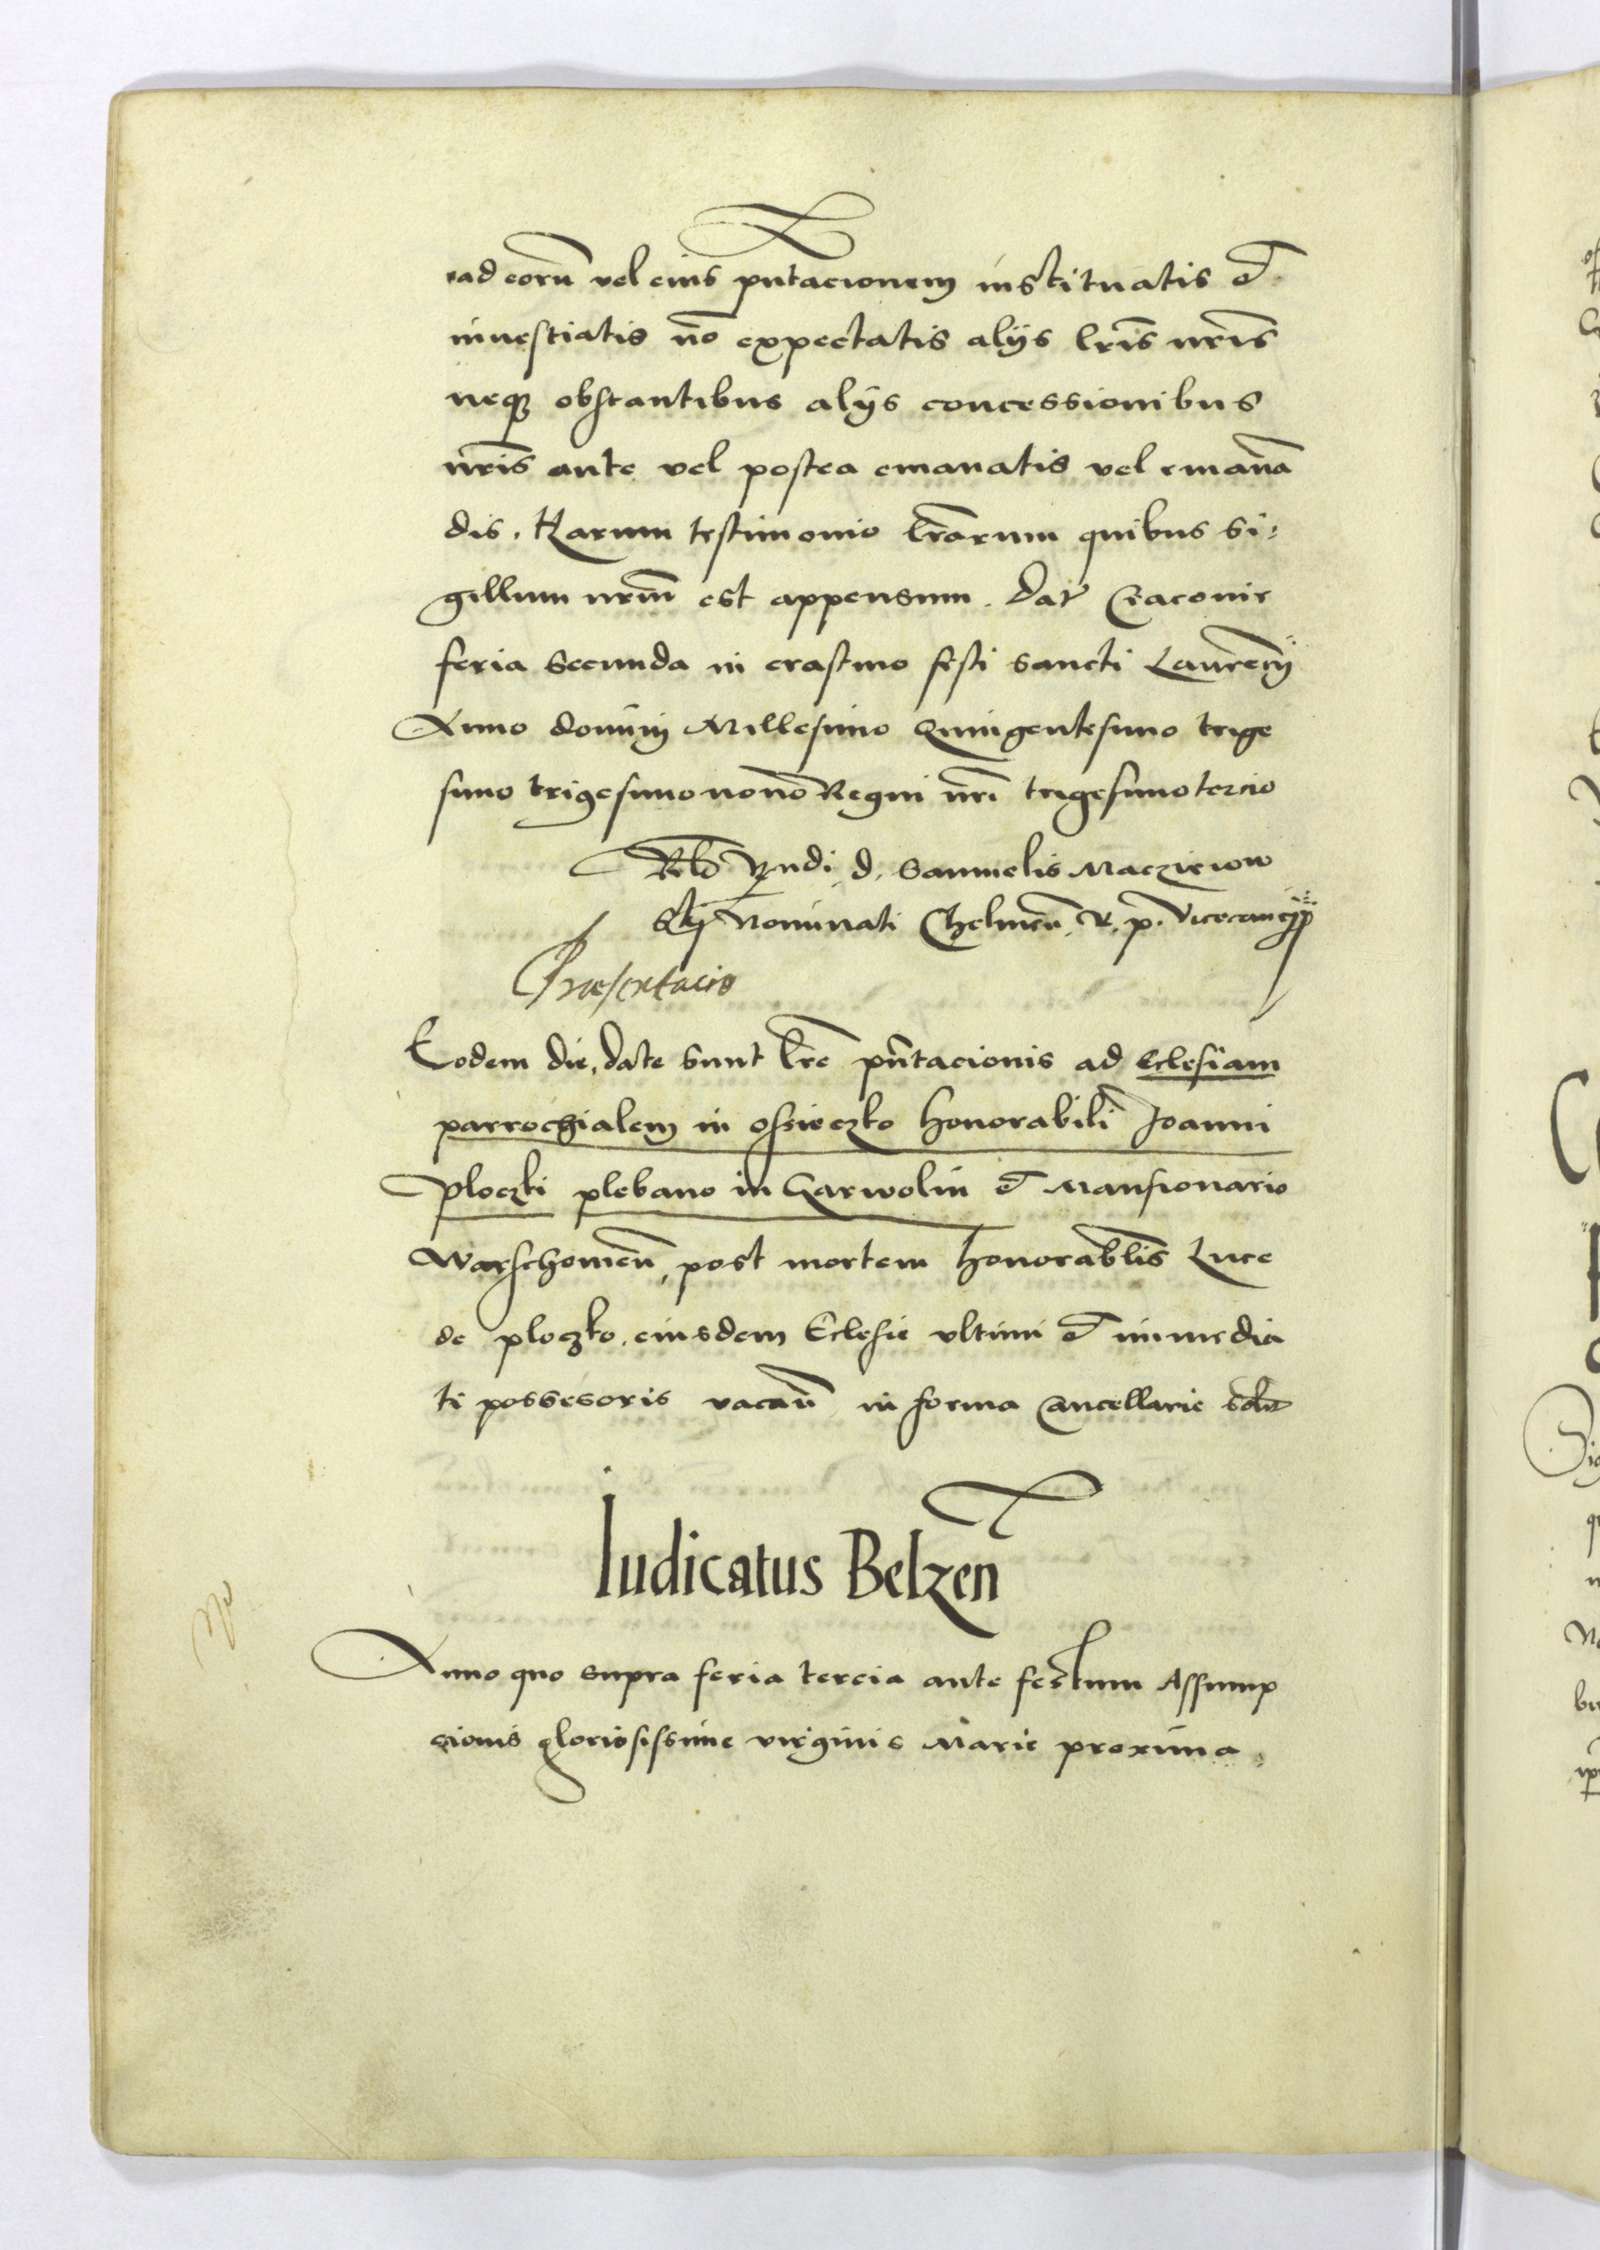 ad eorũ vel eius pñtacionem instituatis et
inuestiatis nõ expectatis alijs lr̃is nr̃is
neqȝ obstantibus alijs concessionibus
nr̃is ante vel postea emanatis vel emanã
dis. Harum testimonio lr̃arum quibus si:
gillum nrũm est appensum. Dat Cracouie
feria secunda in crastino festi sancti Laurẽcij
Anno domini Millesimo Quingentesimo trige
simo trigesimo nono Regni nr̃i trigesimo tercio
Relõ Rndi d. Samuelis Maczieiow
sky Nominati Chelmeñ. R. p. Vicecancyȷ̃
Praesentacio
Eodem die, date sunt lr̃e pñtacionis ad Eclesiam
parrochialem in ossieczko honorabili Joanni
Ploczki plebano in Garwolin et Mansionario
Warschouieñ, post mortem honorablis Luce
de ploczko, eiusdem Eclesie vltimi et immedia
ti possesoris vacañ in forma Cancellarie solit
Iudicatus Belzeñ
Anno quo supra feria tercia ante festum Assump
cionis gloriosissime virginis Marie proxima